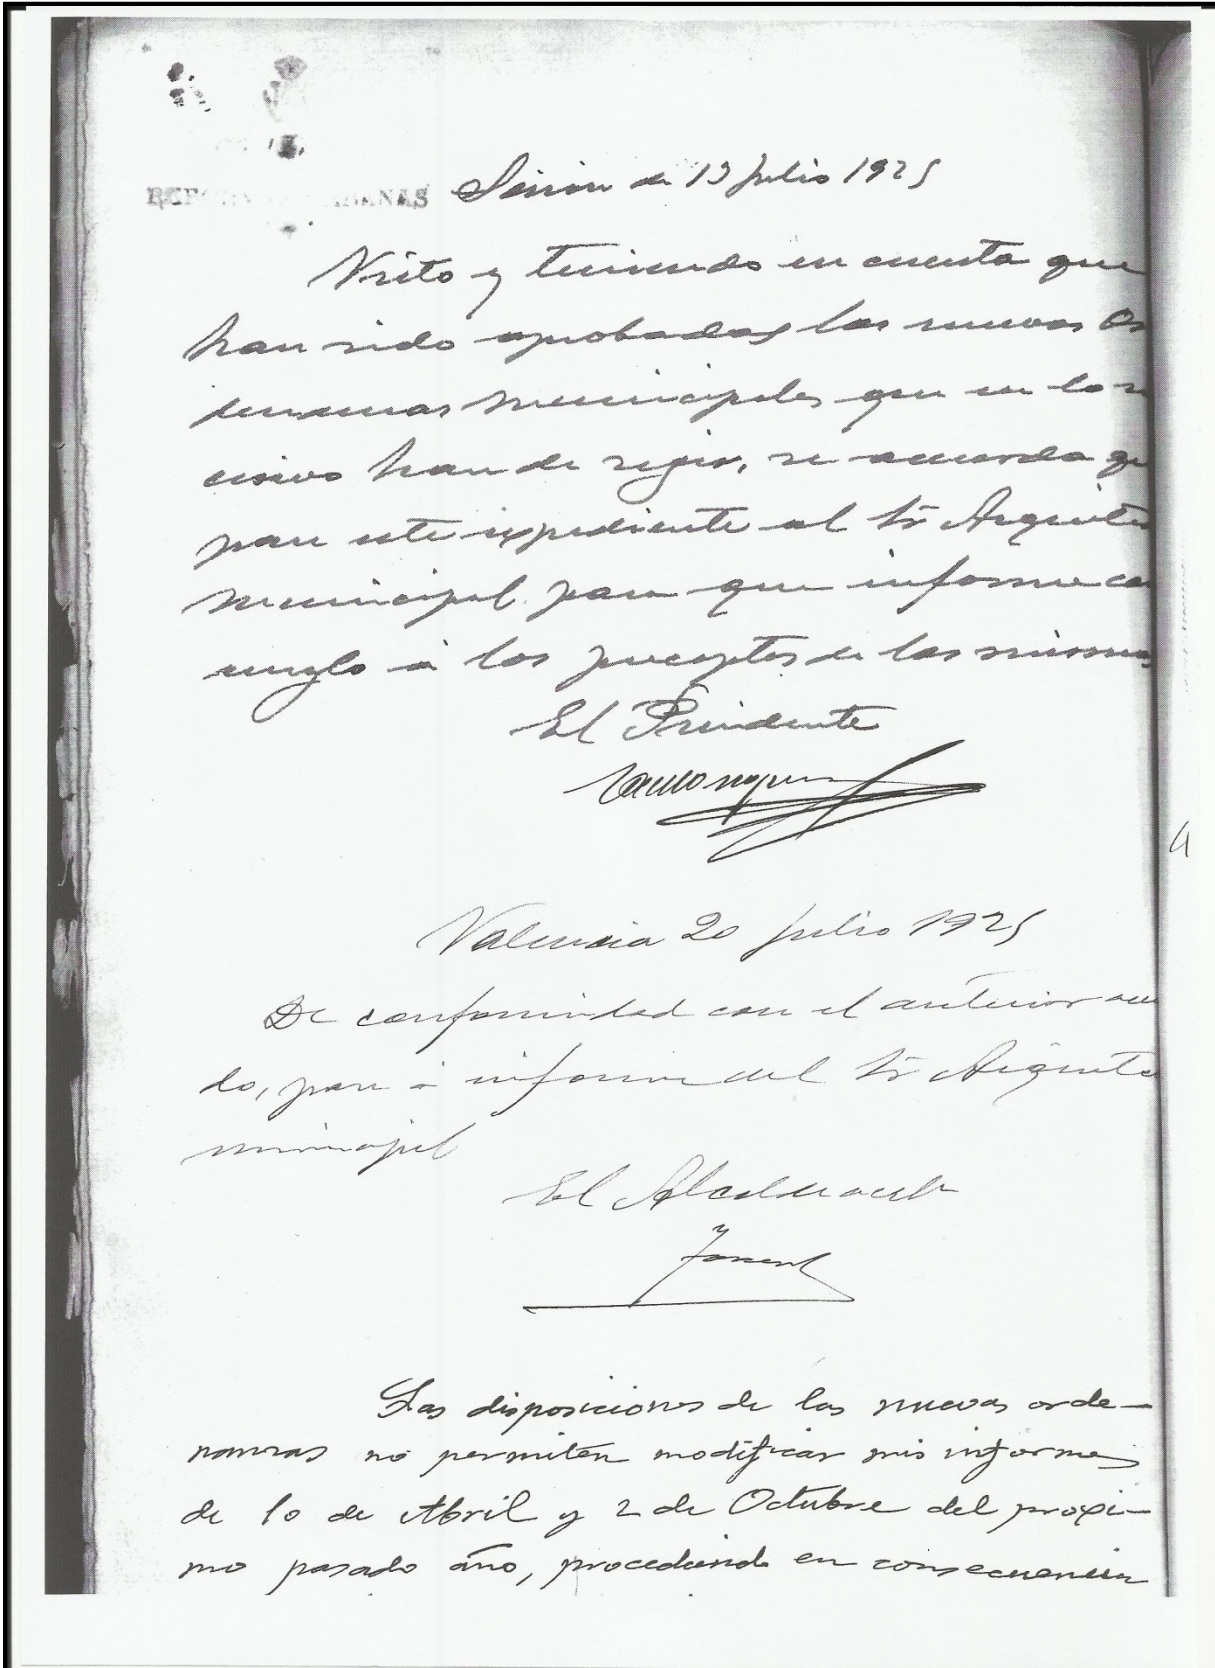 Sesión de 13 Julio 1925
Visto y teniendo en cuenta que
han sido aprobadas las nuevas Or
denanzas municipales que en lo su
cesivo han de regir, se acuerda qu
pase este expediente al Sr Arquitec
municipal para que informe con
arreglo á los preceptos de las mismas
El Presidente
Valencia 20 Julio 1925
De conformidad con el anterior acu
do, pase á informe del Sr Arquitecto
municipal
El Alcalde
Las disposiciones de las nuevas orde-
nanzas no permiten modificar mis informes
de 10 de Abril y 2 de Octubre del proxi-
mo pasado año, procediendo en consecuencia